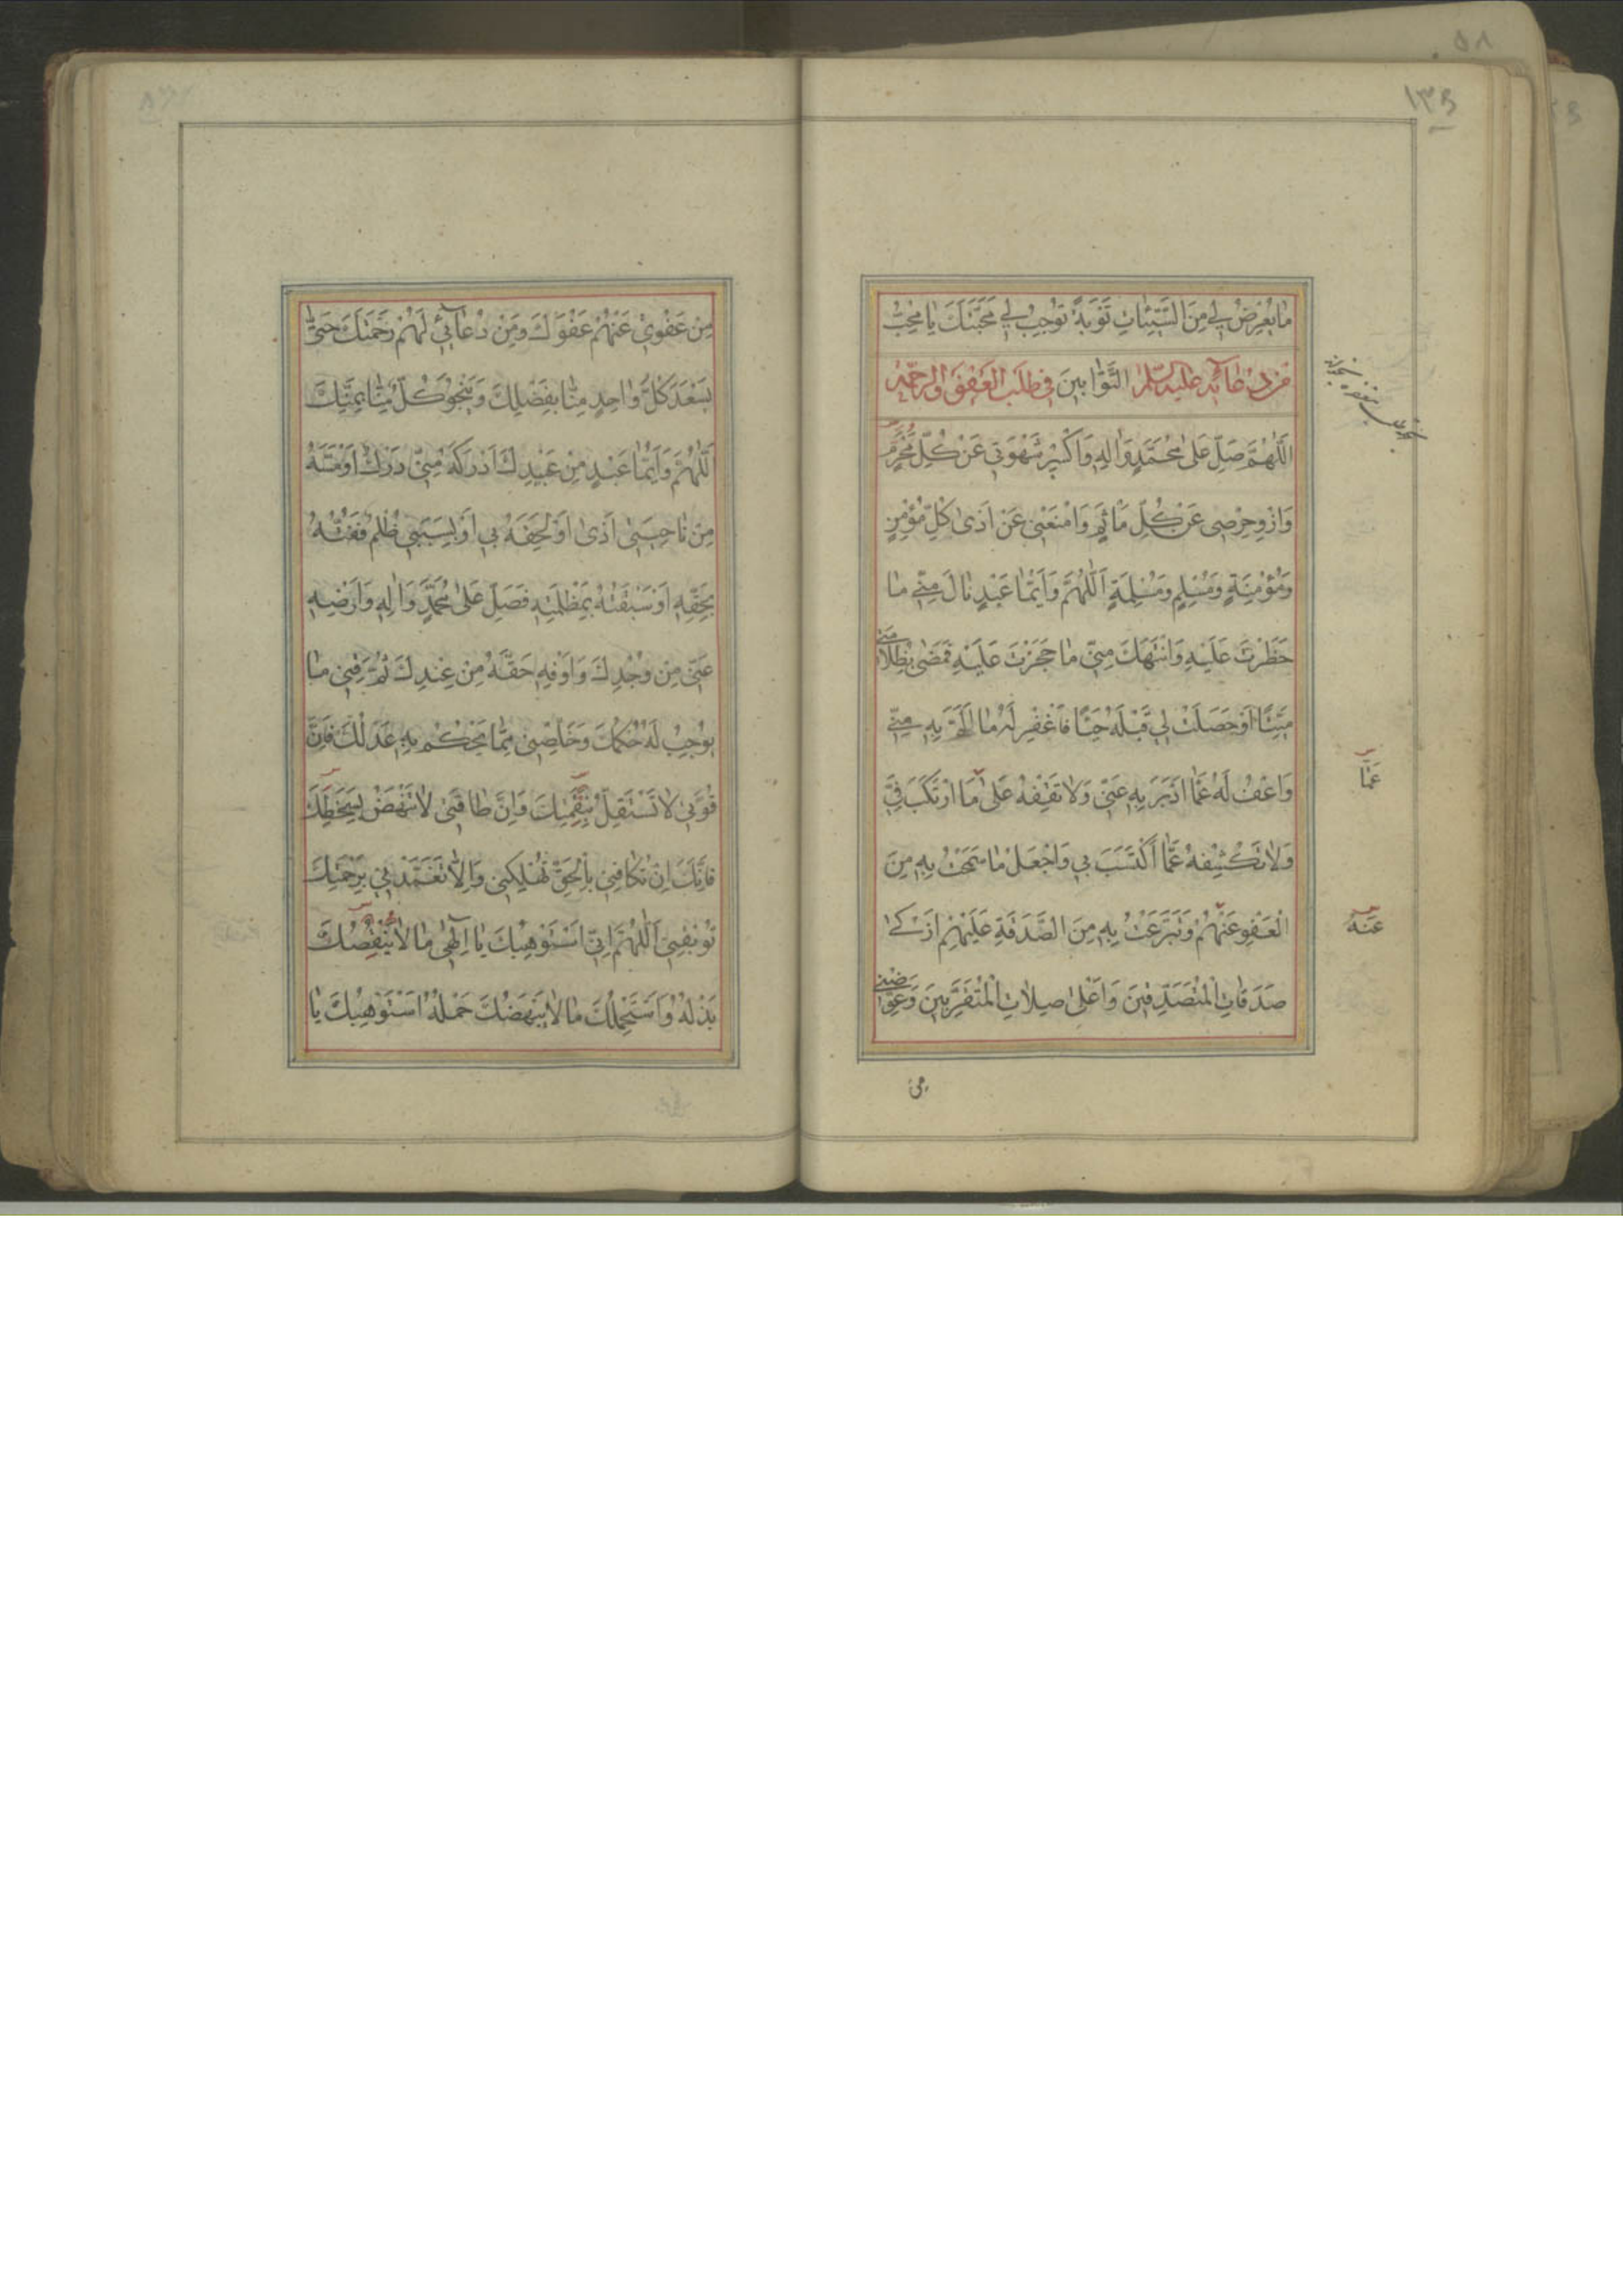 ١٣٥
مٰا يَعْرِضُ لِي مِنَ السَّيِّئٰاتِ تَوْبَةً تُوجِبُ لِي مَحَبَّتَكَ يٰا مُحِبَّ
التَّوّٰابِينَ
مِنْ دُعٰائِهِ عَلَيْهِ السَّلٰمُ فِي طَلَبِ الْعَفْوِ وَالرَّحْمَةِ
اَللّٰهُمَّ صَلِّ عَلٰى مُحَمَّدٍ وَاٰلِهِ وَاكْسِرْ شَهْوَتِي عَنْ كُلِّ مُحَرَّمٍ
وَازْوِ حِرْصِي عَنْ كُلِّ مَأْثَمٍ وَامْنَعْنِي عَنْ اَذٰى كُلِّ مُؤْمِنٍ
وَمُؤْمِنَةٍ وَمُسْلِمٍ وَمُسْلِمَةٍ اَللّٰهُمَّ وَاَيُّمٰا عَبْدٍ نٰالَ مِنِّي مٰا
حَظَرْتَ عَلَيْهِ وَانْتَهَكَ مِنِّي مٰا حَجَزْتَ عَلَيْهِ فَمَضٰى بِظُلٰامَتِي
مَيِّتًا اَوْ حَصَلَتْ لِي قِبَلَهُ حَيًّا فَاغْفِرْ لَهُ مٰا اَلَمَّ بِهِ مِنِّي
وَاعْفُ لَهُ عَمّٰا اَدْبَرَ بِهِ عَنِّي وَلاٰ تَقِفْهُ عَلٰى مَا ارْتَكَبَ فِيَّ
عَمّٰا
وَلاٰ تَكْشِفْهُ عَمَّا اكْتَسَبَ بِي وَاجْعَلْ مٰا سَمَحْتُ بِهِ مِنَ
الْعَفْوِ عَنْهُمْ وَتَبَرَّعْتُ بِهِ مِنَ الصَّدَقَةِ عَلَيْهِمْ اَزْكٰى
عَنْهُ
صَدَقٰاتِ الْمُتَصَدِّقِينَ وَاَعْلٰى صِلاٰتِ الْمُتَقَرِّبِينَ وَعَوِّضْنِي
مِنْ
مِنْ عَفْوِي عَنْهُمْ عَفْوَكَ وَمِنْ دُعٰائِي لَهُمْ رَحْمَتَكَ حَتّٰى
يَسْعَدَ كُلُّ وٰاحِدٍ مِنّٰا بِفَضْلِكَ وَيَنْجُوَ كُلٌّ مِنّٰا بِمَنِّكَ
اَللّٰهُمَّ وَاَيُّمٰا عَبْدٍ مِنْ عَبِيدِكَ اَدْرَكَهُ مِنِّي دَرَكٌ اَوْ مَسَّهُ
مِنْ نٰاحِيَتِي اَذًى اَوْ لَحِقَهُ بِي اَوْ بِسَبَبِي ظُلْمٌ فَفُتُّهُ
بِحَقِّهِ اَوْ سَبَقْتُهُ بِمَظْلَمَتِهِ فَصَلِّ عَلٰى مُحَمَّدٍ وَاٰلِهِ وَاَرْضِهِ
عَنِّي مِنْ وُجْدِكَ وَاَوْفِهِ حَقَّهُ مِنْ عِنْدِكَ ثُمَّ قِنِي مٰا
يُوجِبُ لَهُ حُكْمُكَ وَخَلِّصْنِي مِمّٰا يَحْكُمُ بِهِ عَدْلُكَ فَاِنَّ
قُوَّتِي لاٰ تَسْتَقِلُّ بِنِقْمَتِكَ وَاِنَّ طٰاقَتِي لاٰ تَنْهَضُ بِسَخَطِكَ
فَاِنَّكَ اِنْ تُكٰافِنِي بِالْحَقِّ تُهْلِكْنِي وَاِلاّٰ تَغَمَّدْنِي بِرَحْمَتِكَ
تُوبِقْنِي اَللّٰهُمَّ اِنِّي اَسْتَوْهِبُكَ يٰا اِلٰهِي مٰا لاٰ يَنْقُصُكَ
بَذْلُهُ وَاَسْتَحْمِلُكَ مٰا لاٰ يَبْهَضُكَ حَمْلُهُ اَسْتَوْهِبُكَ يٰا